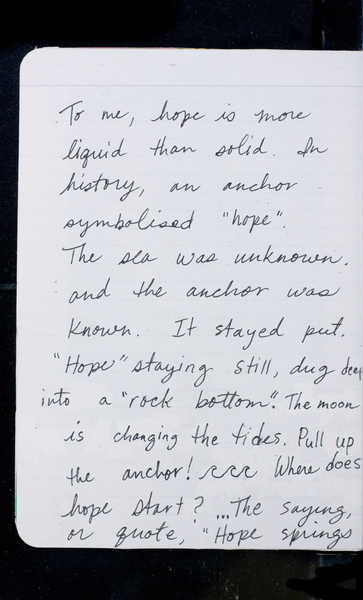 To me, hope is more
liquid than solid. In
history, an anchor
symbolised "hope".
The sea was unknown.
and the anchor was
known. It stayed put.
"Hope" staying still, dug deep
into a "rock bottom". The moon
is changing the tides. Pull up
the anchor! Where does
hope start? ...The saying,
or quote, "Hope springs